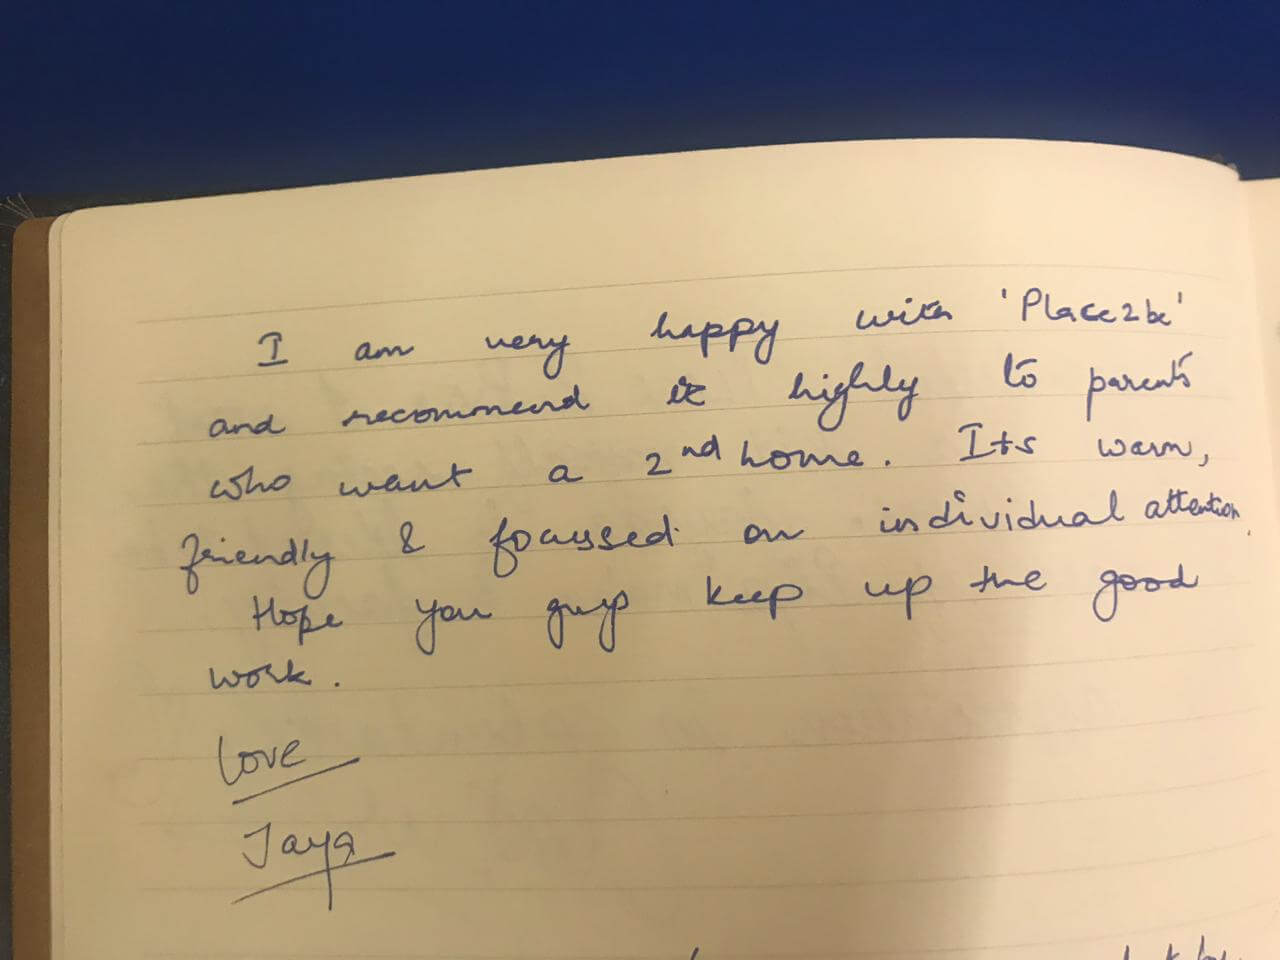 I am very happy with 'Place2be'
and recommend it highly to parents
who want a 2nd home. Its warm,
friendly & focussed on individual attention.
Hope you guys keep up the good
work.
Love
Jaya